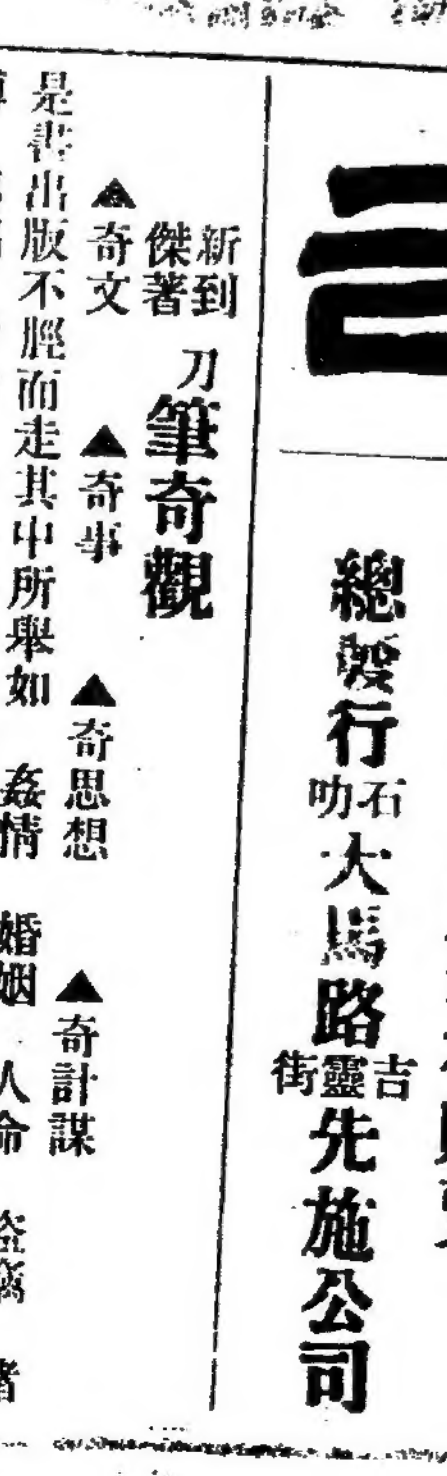 總發行石叻大馬路吉靈街先施公司
新到傑著 刀筆奇觀
▲奇文 ▲奇事 ▲奇思想 ▲奇計謀
是書出版不脛而走其中所舉如 姦情 婚姻 人命 盜竊